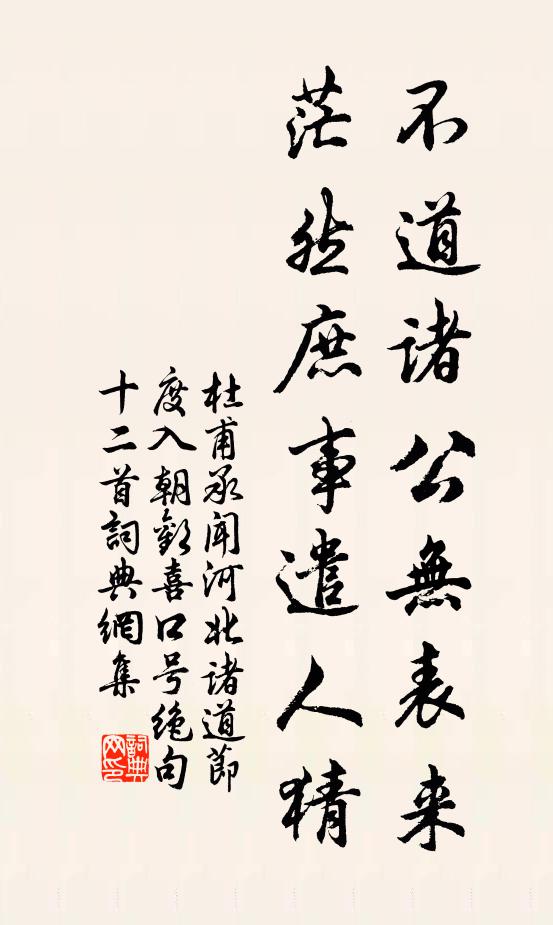 不道诸公無表来
茫然庶事遣人猜
杜甫承闻河北诸道節
度入朝歡喜口号絶句
十二首詞典網集
詞典网印